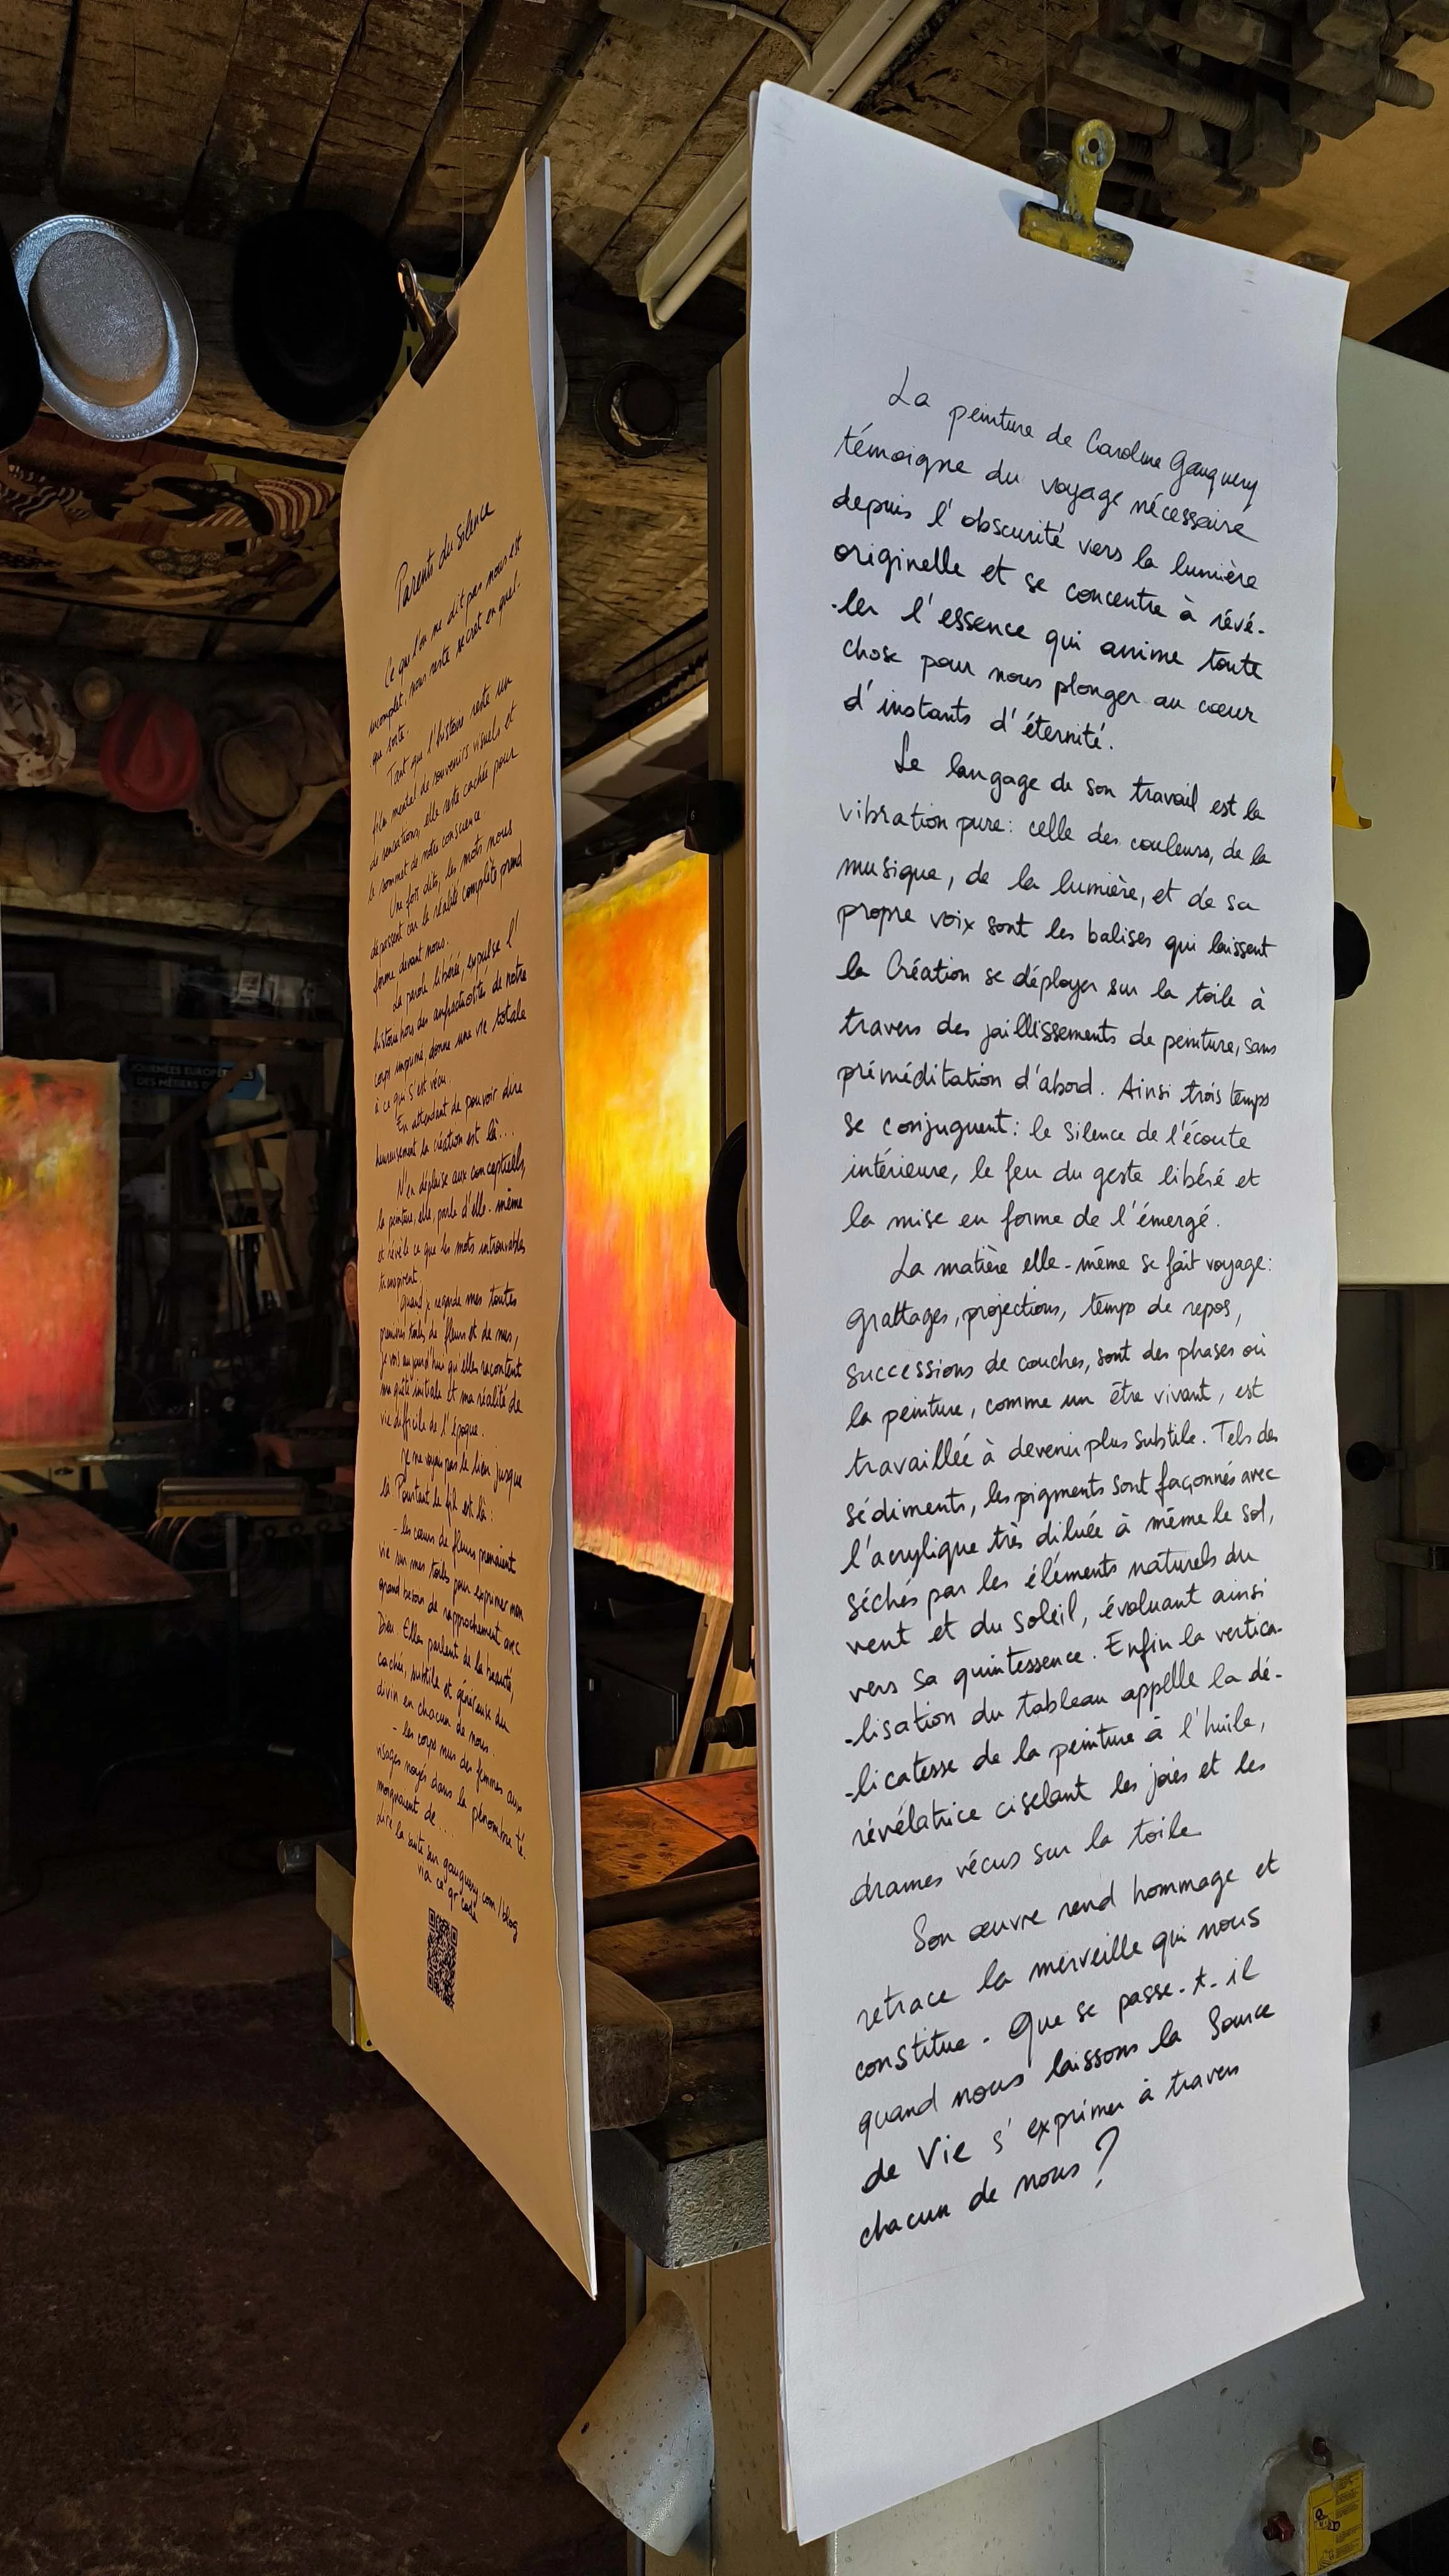 Parents du silence
Ce que l'on ne dit pas nous est
incomplet, nous reste secret en quel-
que sorte.
Tant que l'histoire reste un
film mental de souvenirs visuels et
de sensations, elle reste cachée pour
le sommet de notre conscience
Une fois dits, les mots nous
dépassent car la réalité complète prend
forme devant nous.
La parole libérée, expulse l'
histoire hors des anfractuosités de notre
corps imprimé, donne une vie totale
à ce qui s'est vécu.
En attendant de pouvoir dire
heureusement la création est là...
N'en déplaise aux conceptuels,
la peinture, elle, parle d'elle-même
et révèle ce que les mots introuvables
transpirent.
Quand je regarde mes toutes
premières toiles de fleurs et de nus,
je vois aujourd'hui qu'elles racontent
ma quête initiale et ma réalité de
vie difficile de l'époque.
Je ne voyais pas le lien jusque
là Pourtant le fil est là :
- les cœurs de fleurs prenaient
vie sur mes toiles pour exprimer mon
grand besoin de rapprochement avec
Dieu. Elles parlent de la beauté,
cachée, subtile et généreuse du
divin en chacun de nous.
- les corps nus des femmes aux
visages noyés dans la pénombre té-
moignaient de ...
lire la suite sur gauquery.com/blog
via ce qr code
JOURNÉES EUROPÉ
DES MÉTIERS D'
La peinture de Caroline Gauquery
témoigne du voyage nécessaire
depuis l'obscurité vers la lumière
originelle et se concentre à révé-
-ler l'essence qui anime toute
chose pour nous plonger au cœur
d'instants d'éternité.
Le langage de son travail est la
vibration pure : celle des couleurs, de la
musique, de la lumière, et de sa
propre voix sont les balises qui laissent
la Création se déployer sur la toile à
travers des jaillissements de peinture, sans
préméditation d'abord. Ainsi trois temps
se conjuguent : le silence de l'écoute
intérieure, le feu du geste libéré et
la mise en forme de l'émergé.
La matière elle-même se fait voyage :
grattages, projections, temps de repos,
successions de couches, sont des phases où
la peinture, comme un être vivant, est
travaillée à devenir plus subtile. Tels des
sédiments, les pigments sont façonnés avec
l'acrylique très diluée à même le sol,
séchés par les éléments naturels du
vent et du soleil, évoluant ainsi
vers sa quintessence. Enfin la vertica-
-lisation du tableau applle la dé-
-licatesse de la peinture à l'huile,
révélatrice ciselant les joies et les
drames vécus sur la toile
Son œuvre rend hommage et
retrace la merveille qui nous
constitue. Que se passe-t-il
quand nous laissons la Source
de Vie s'exprimer à travers
chacun de nous ?